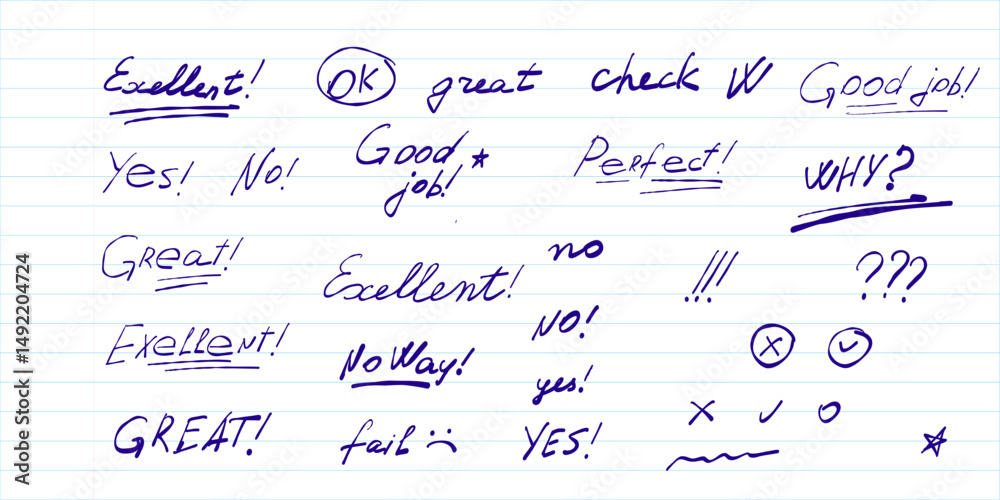 Exellent! OK great check W Good job!
Yes! No! Good job! Perfect! WHY?
Great! Exellent! no !!! ???
Exellent! No Way! NO!
yes!
GREAT! fail :( YES!
Adobe Stock | #1492204724